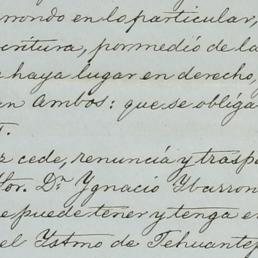 rrondo en lo particular,
critura, por medio de la
haya lugar en derecho,
en Ambos: que se obliga
T.
cede, renuncia y traspa
tor. Dr. Ygnacio Ybarron
puede tener y tenga e
el Istmo de Tehuantep